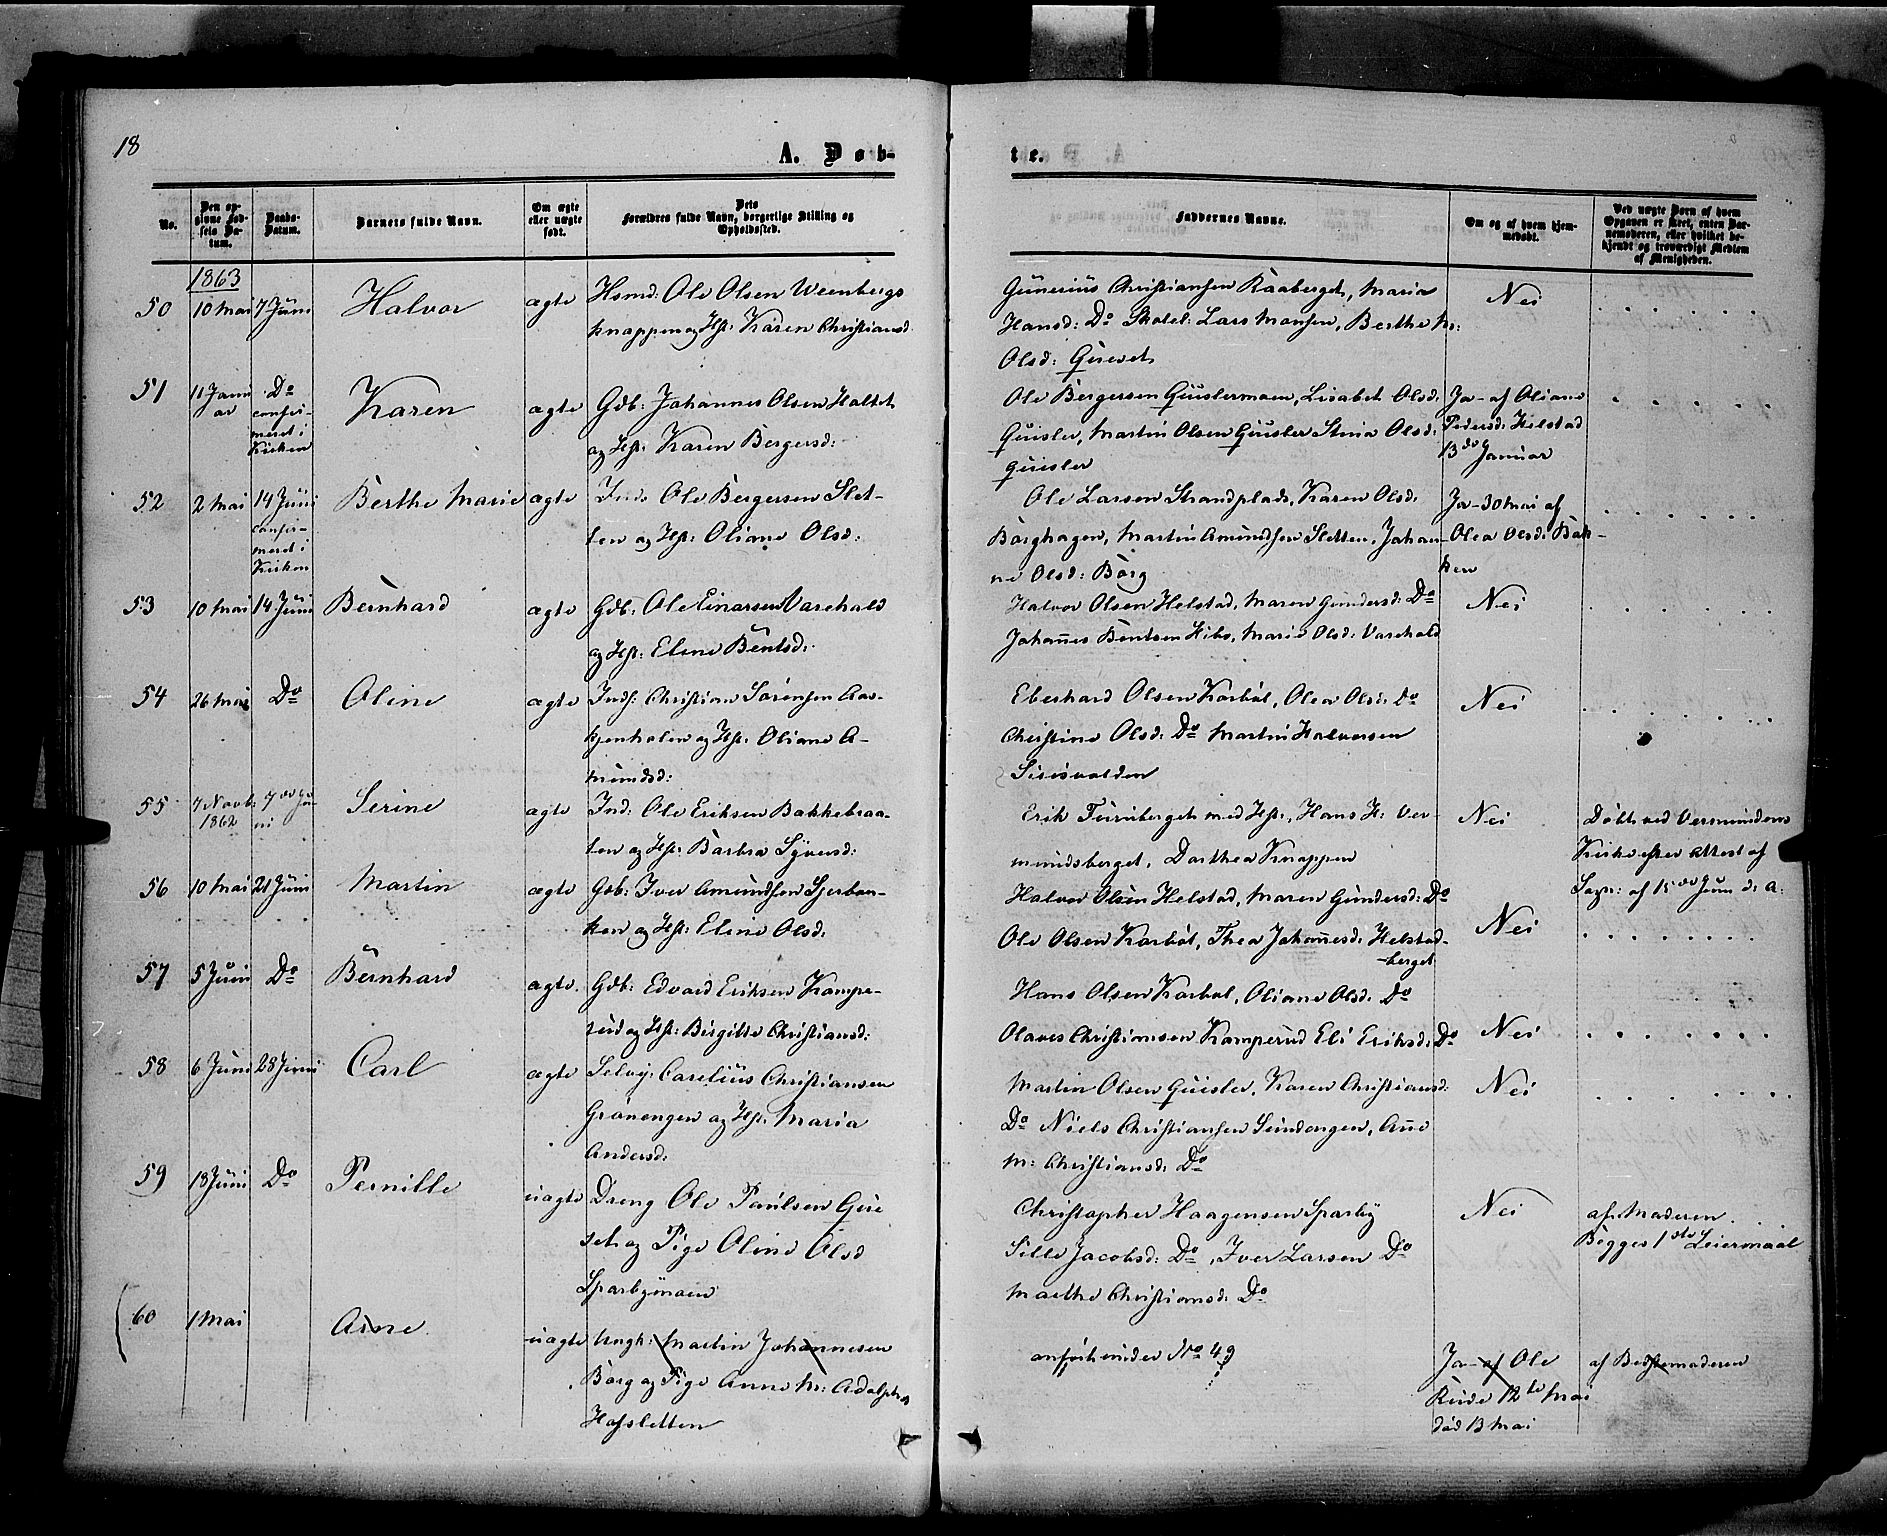 18
A. Døb-
te.
No.
Den op-
givne Fød-
sels Da-
tum.
Daabs-
Datum.
Barnets fulde Navn.
Om ægte
eller uægte
født.
Dets
Forældres fulde Navn, borgerlige Stilling og
Opholdssted.
Faddernes Navne.
Om og af hvem hjem-
medøbt.
Ved uægte Børn af hvem
Opgaven er skeet, enten Bar-
nemoderen, eller hvilket be-
kjendt og troværdigt Medlem
af Menigheden.
1863
50 10 Mai 7 Juni Halvor ægte Hsmd: Ole Olsen Weenbergs
knappen og Hst: Karen Christiansd:
Gunerius Christiansen Raaberget, Maria
Hansd: Do Skolel: Lars Monsen, Berthe M:
Olsd: Guset
Nei
51 11 Janu
ar
Do
confir-
meret i
Kirken
Karen ægte Gdb: Johannes Olsen Holtet
og Hst: Karen Bergersd:
Ole Bergersen Guslermoen, Lisabet Olsd:
Guisler, Martin Olsen Guisler Stina Olsd:
Guisler
Ja - af Oliane
Pedersd: Helstad
13de Januar
52 2 Mai 14 Juni
confir-
meret i
Kirken
Berthe Marie ægte Ind: Ole Bergersen Slet-
ten og Hst: Oliane Olsd:
Ole Larsen Strandplads, Karen Olsd:
Borghagen, Martin Amundsen Sletten, Johan-
ne Olsd: Borg
Ja - 30 Mai af
Olea Olsd: Bak-
ken
53 10 Mai 14 Juni Bernhard ægte Gdb: Ole Einarsen Varehold
og Hst: Eline Bentsd:
Halvor Olsen Helstad, Maren Gundersd: Do
Johannes Bentsen Kibo, Marie Olsd: Varehold
Nei
54 26 Mai Do Oline ægte Inds: Christian Sørensen Aas-
kjenholen og Hst: Oliane A-
mundsd:
Eberhard Olsen Korbøl, Olea Olsd: Do
Christine Olsd: Do Martin Halvorsen
Sirisvolden
Nei
55 7 Novb:
1862
7de Ju-
ni
Serine ægte Ind: Ole Eriksen Bakkebraa-
ten og Hst: Barbra Syversd:
Erik Furuberget med Hst:, Hans H: Ver-
mundsberget, Dorthea Knappen
Nei
Døbt ved Vermundens
Kirke efter Attest af
Sogn: af 15de Juni d: A:
56 10 Mai 21 Juni Martin ægte Gdb: Iver Amundsen Sjerban-
ken og Hst: Eline Olsd:
Halvor Olsen Helstad, Maren Gundersd: Do
Ole Olsen Korbøl, Thea Johannesd: Helstad-
berget
Nei
57 5 Juni Do Bernhard ægte. Gdb: Edvard Eriksen Kampe-
rud og Hst: Birgitte Christiansd:
Hans Olsen Korbøl, Oliane Olsd: Do
Olaves Christiansen Kamperud Eli Eriksd: Do
Nei
58 6 Juni 28 Juni Carl ægte Selvej: Carelius Christiansen
Grønengen og Hst: Maria
Andersd:
Martin Olsen Guisler, Karen Christiansd:
Do Niels Christiansen Sundengen, Ane
M: Christiansd: Do
Nei
59 18 Juni Do Pernille uægte Dreng Ole Paulsen Gui
set og Pige Oline Olsd
Sparbymoen
Christopher Haagensen Sparby
Sille Jacobsd: Do, Iver Larsen Do
Marthe Christiansd: Do
Nei
af Moderen
Begges 1ste Leiermaal
60 1 Mai Arne uægte Ungk: Martin Johannesen
Borg og Pige Anne M: Adolphsd
Hofsletten
anført under No 49
Ja - af Ole
Rude 12te Mai
død 13 Mai
af Bedstemoderen